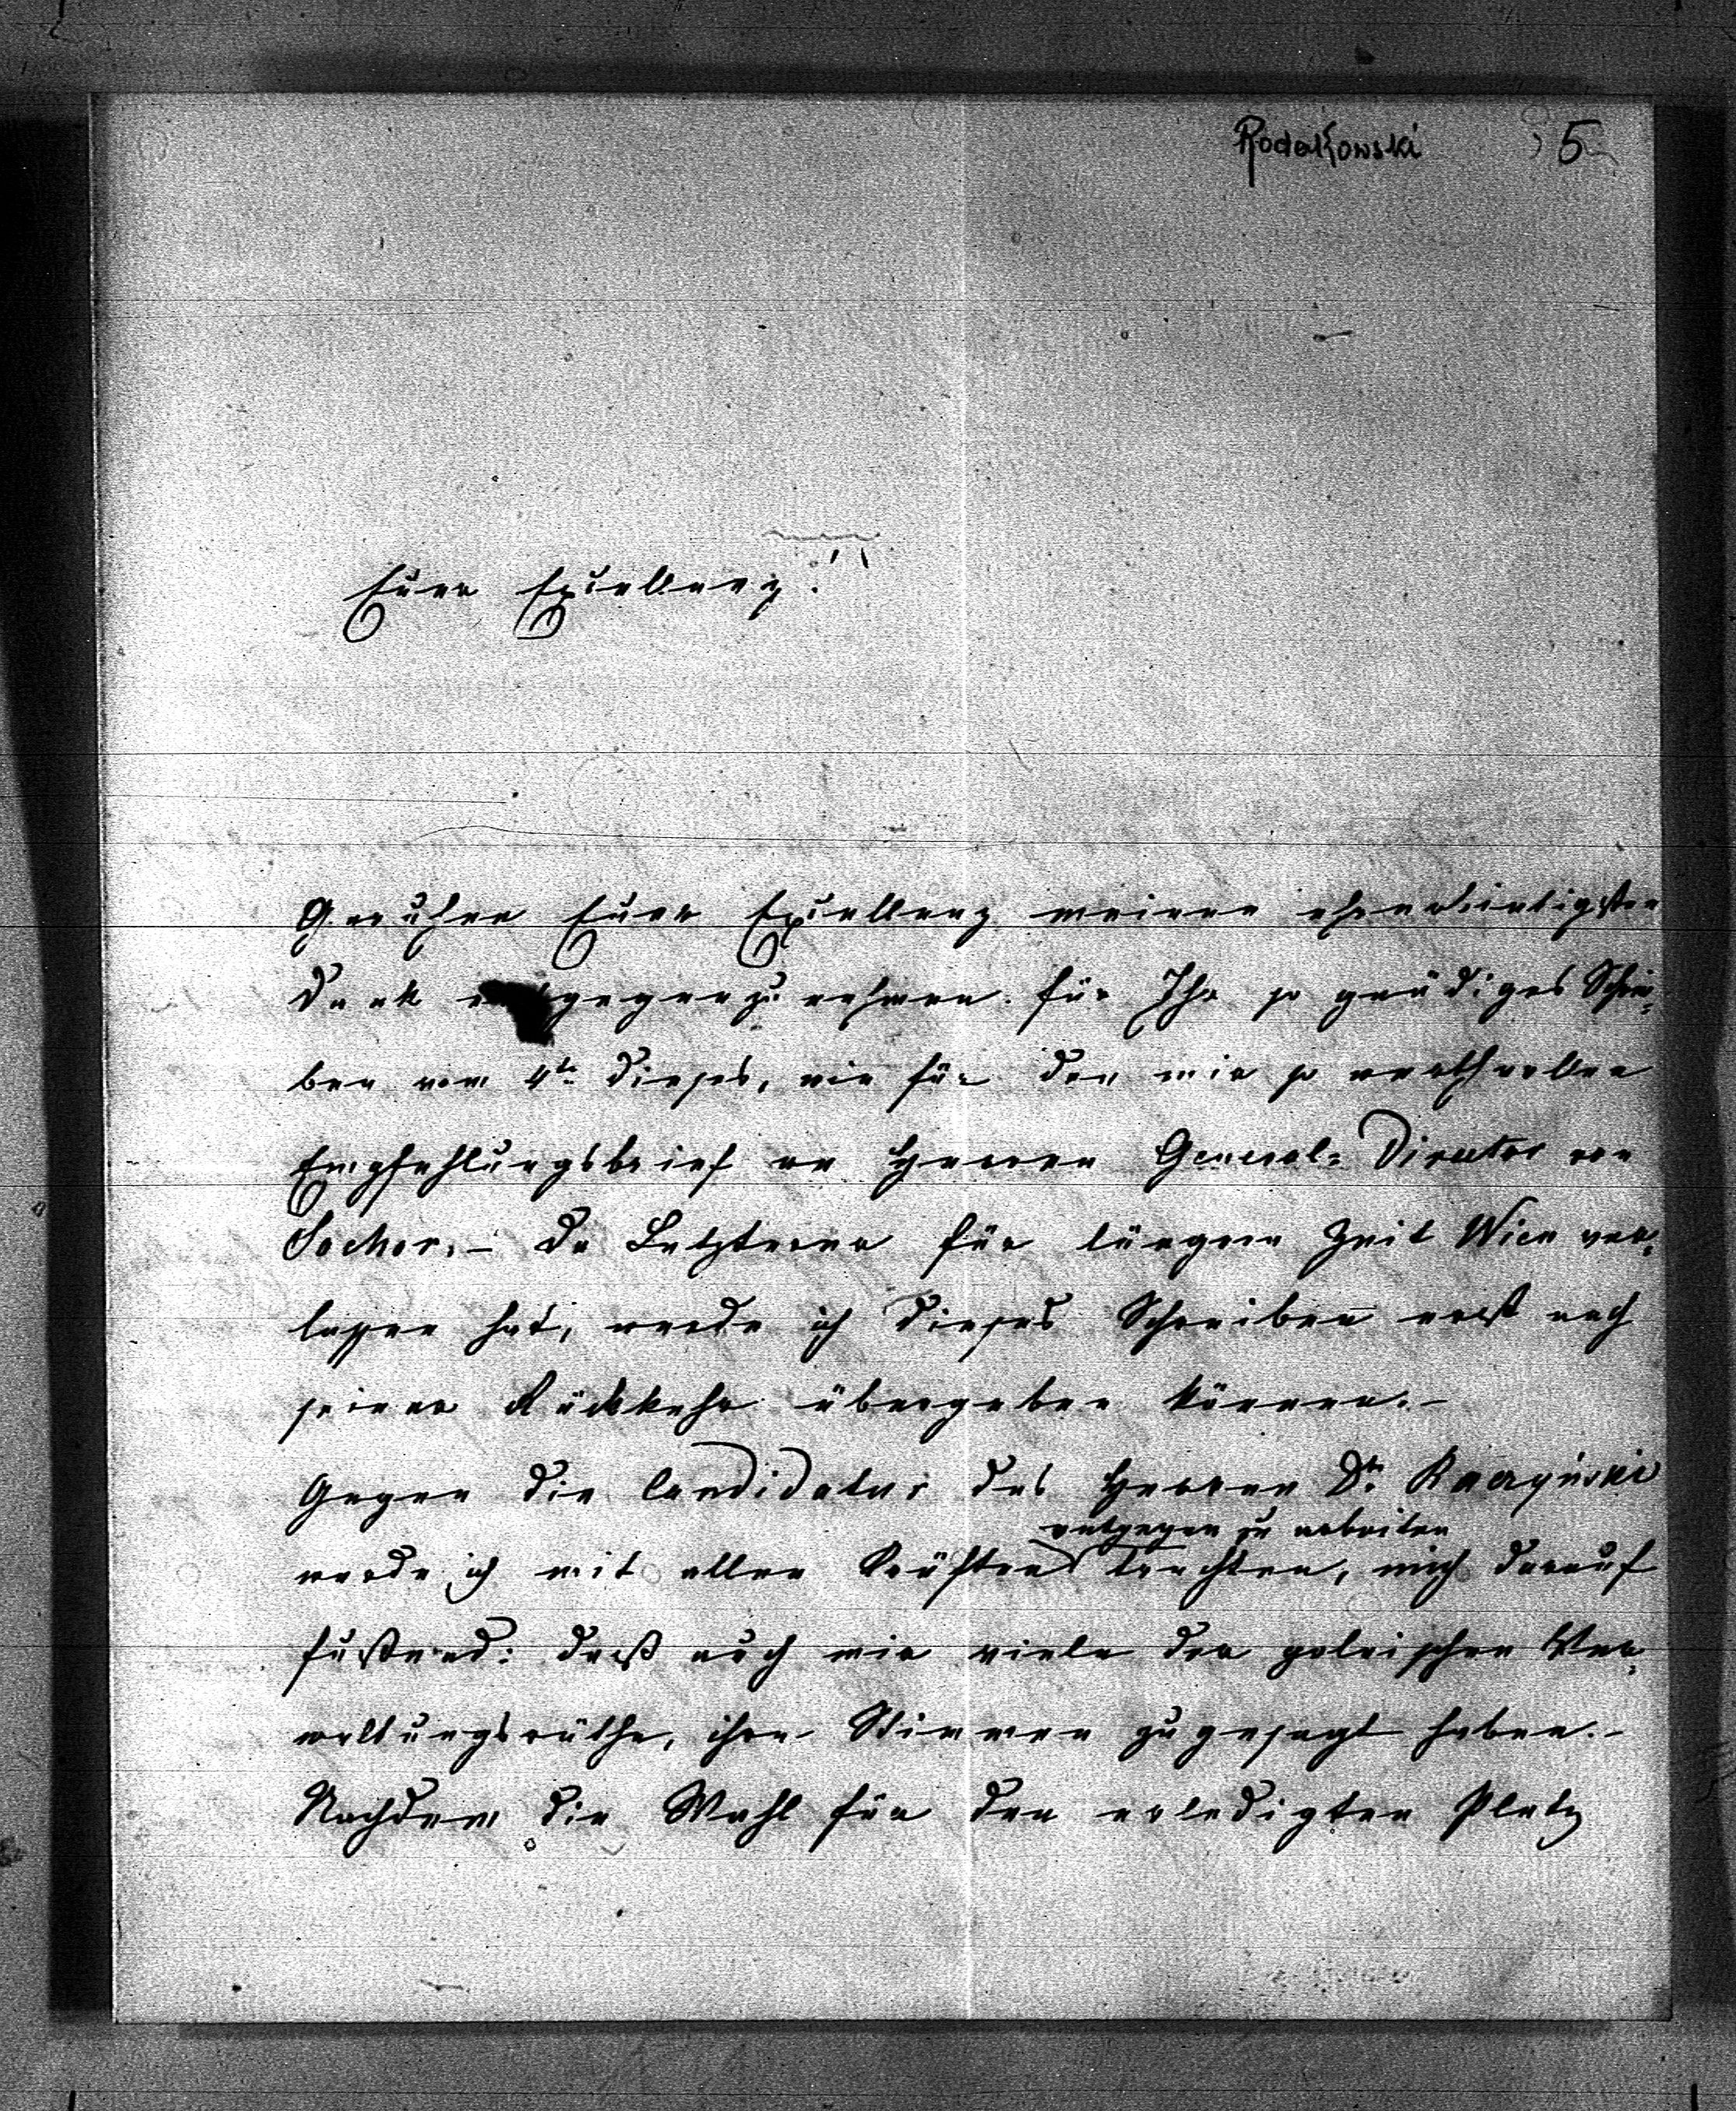 Rodakowski 5
Euer Exzellenz!
Geruhen Euer Exzellenz meinen ehrerbietigsten
Dank entgegenzunehmen für Ihr so gnädiges Schrei-
ben vom 4ten dieses, wie für den mir so werthvollen
Empfehlungsbrief an Herren General-Director von
Sochor. – Da Letzterer für längere Zeit Wien ver-
lassen hat, werde ich dieses Schreiben erst nach
seiner Rückkehr übergeben können. –
Gegen die Candidatur des Herren Dr
entgegen zu arbeiten
werde ich mit allen Kräften trachten, mich darauf
fußend: daß auch mir viele der polnischen Ver-
waltungsräthe, ihre Stimmen zugesagt haben. –
Nachdem die Wahl für den erledigten Platz